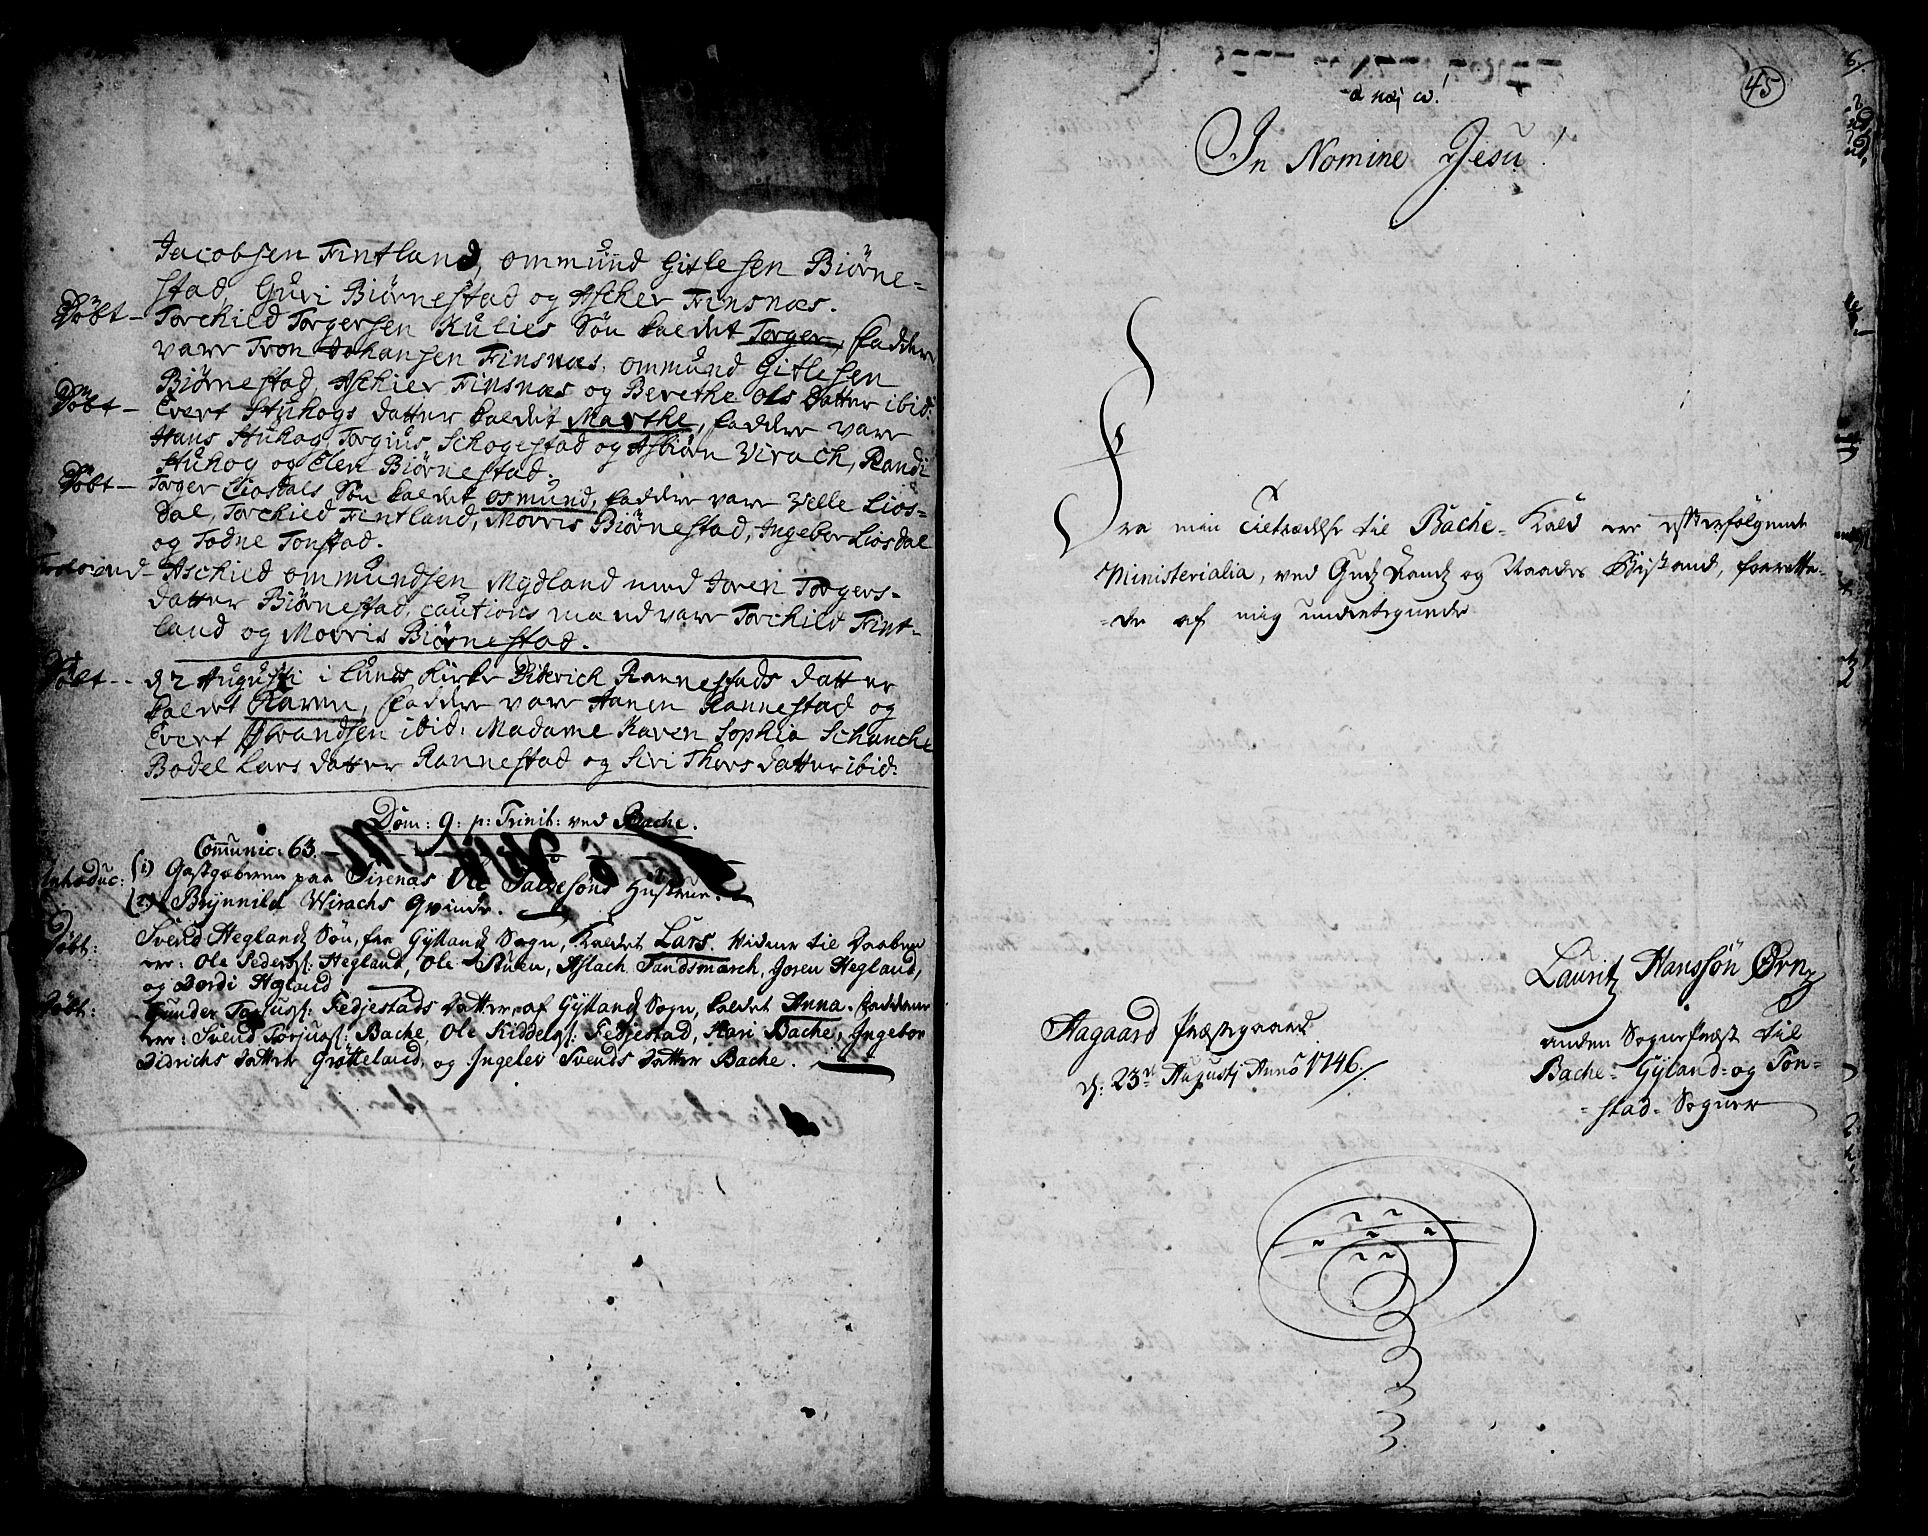 Jacobsen Fintland, ommund Gitlesen Biørne-
stad, Guri Biørnestad og Ascher Finsnæs.
Døbt - Torchild Torgersen Kulies Søn kaldet Torger, faddere
vare Tron Johansen Finsnæs, ommund Gitlesen
Biørnestad, Aschier Finsnæs og Berethe Ols Datter ibid:
Døbt - Evert Stuhogs datter kaldet Marthe, faddere vare
Hans Stuhog, Torgius Schogestad og Asbiørn Virach, Randi
Stuhog og Elen Biørnestad.
Døbt - Torger Liosdals Søn kaldet osmund, faddere vare Velle Lios-
dal, Torchild Fintland, Morris Biørnestad, Ingebor Liosdal
og Todne Tonstad.
Aschild ommundsen Mydland med Joren Torgers-
datter Biørnestad, cautions mænd vare Torchild Fint-
land og Morris Biørnestad.
Døbt - d 2 Augusti i Lunds Kirke Diderich Rannestads datter
kaldet Karen, faddere vare Aanen Rannestad og
Evert Thrandsen ibid: Madame Karen Sophia Schanche
Bodel Lars datter Rannestad og Siri Thors datter ibid:
Dom: 9: p: Trinit: ved Bache.
Communic: 63.
Introduc: (1) Gastgæberen paa Sirenæs Ole Salvesøns Hustrue.
(2) Brynnild Wirachs Qvinde.
Døbt: Svend Heglands Søn, fra Gyllands Sogn, kaldet Lars. Vidner til Daaben
ere: Ole Peders: Hegland, Ole Stuen, Aslach Tandsmarch, Joren Hegland,
og Bordi Hegland
Døbt: Gunder Tarjuss: Fedjestads datter, af Gyllands Sogn, kaldet Anna. Faddere
ere: Svend Torjuss: Bache, Ole Kiddels: Fedjestad, Kari Bache, Ingebor
Didrichs datter Grøtteland, og Ingelev Svends datter Bache.
45
In Nomine Jesu!
Fra min Tiltrædelse til Bache-Kald ere efterfølgende
Ministerialia, ved Guds Aands og Naades Bistand, forrette-
-de af mig underteignede
Lauritz Hanssøn Ørn
Aagaard Præstegaard
d: 23de Augustj Anno 1746.
anden Sogne Præst til
Bache- Gyland- og Ton-
-stad- Sogner